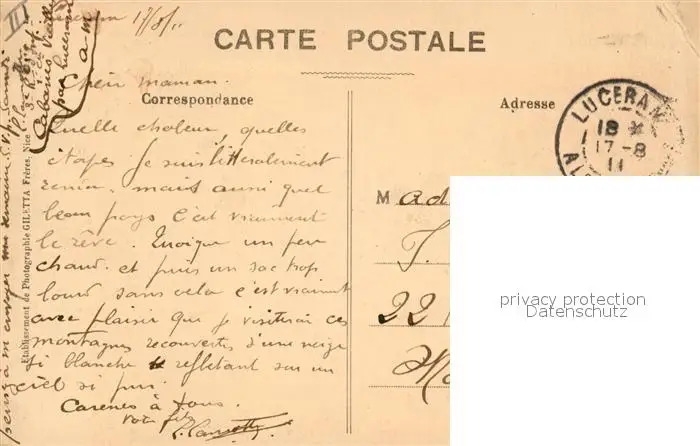 Luceram 17/8/11
CARTE POSTALE
Chère maman.
Correspondance
Adresse
Quelle chaleur, quelles
étapes. Je suis littéralement
mais aussi quel
beau pays c'est vraiment
le rêve. Quoique un peu
chaud. et puis un sac trop
lourd sans cela c'est vraiment
avec plaisir que je visiterai ces
montagnes recouvertes d'une neige
si blanche se reflétant sur un
ciel si pur.
Caresses à tous.
Votre fils
LUCERAM
18
17-8
11
Mad
J.
22
privacy protection
Datenschutz
Etablissement de Photographie GILETTA Frères, Nice
III
Cabanes Vieilles
par Luceram
A-M